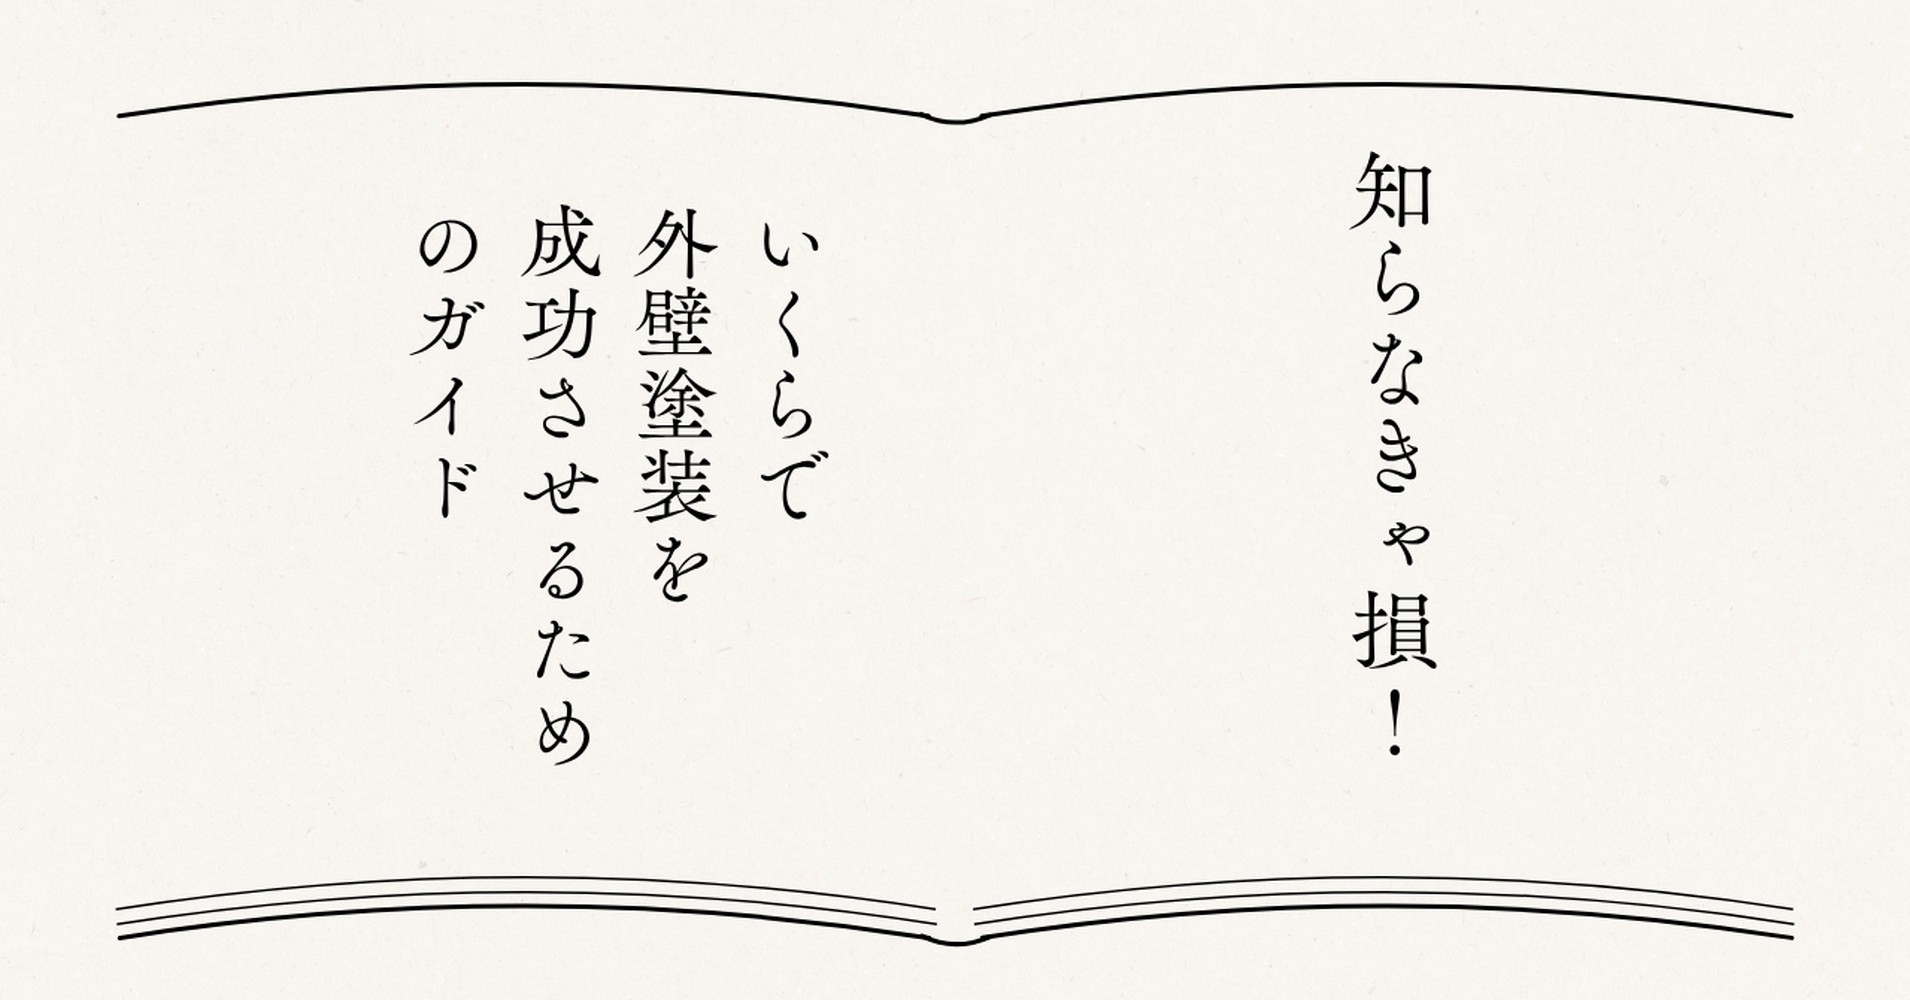 知らなきゃ損！
いくらで
外壁塗装を
成功させるため
のガイド